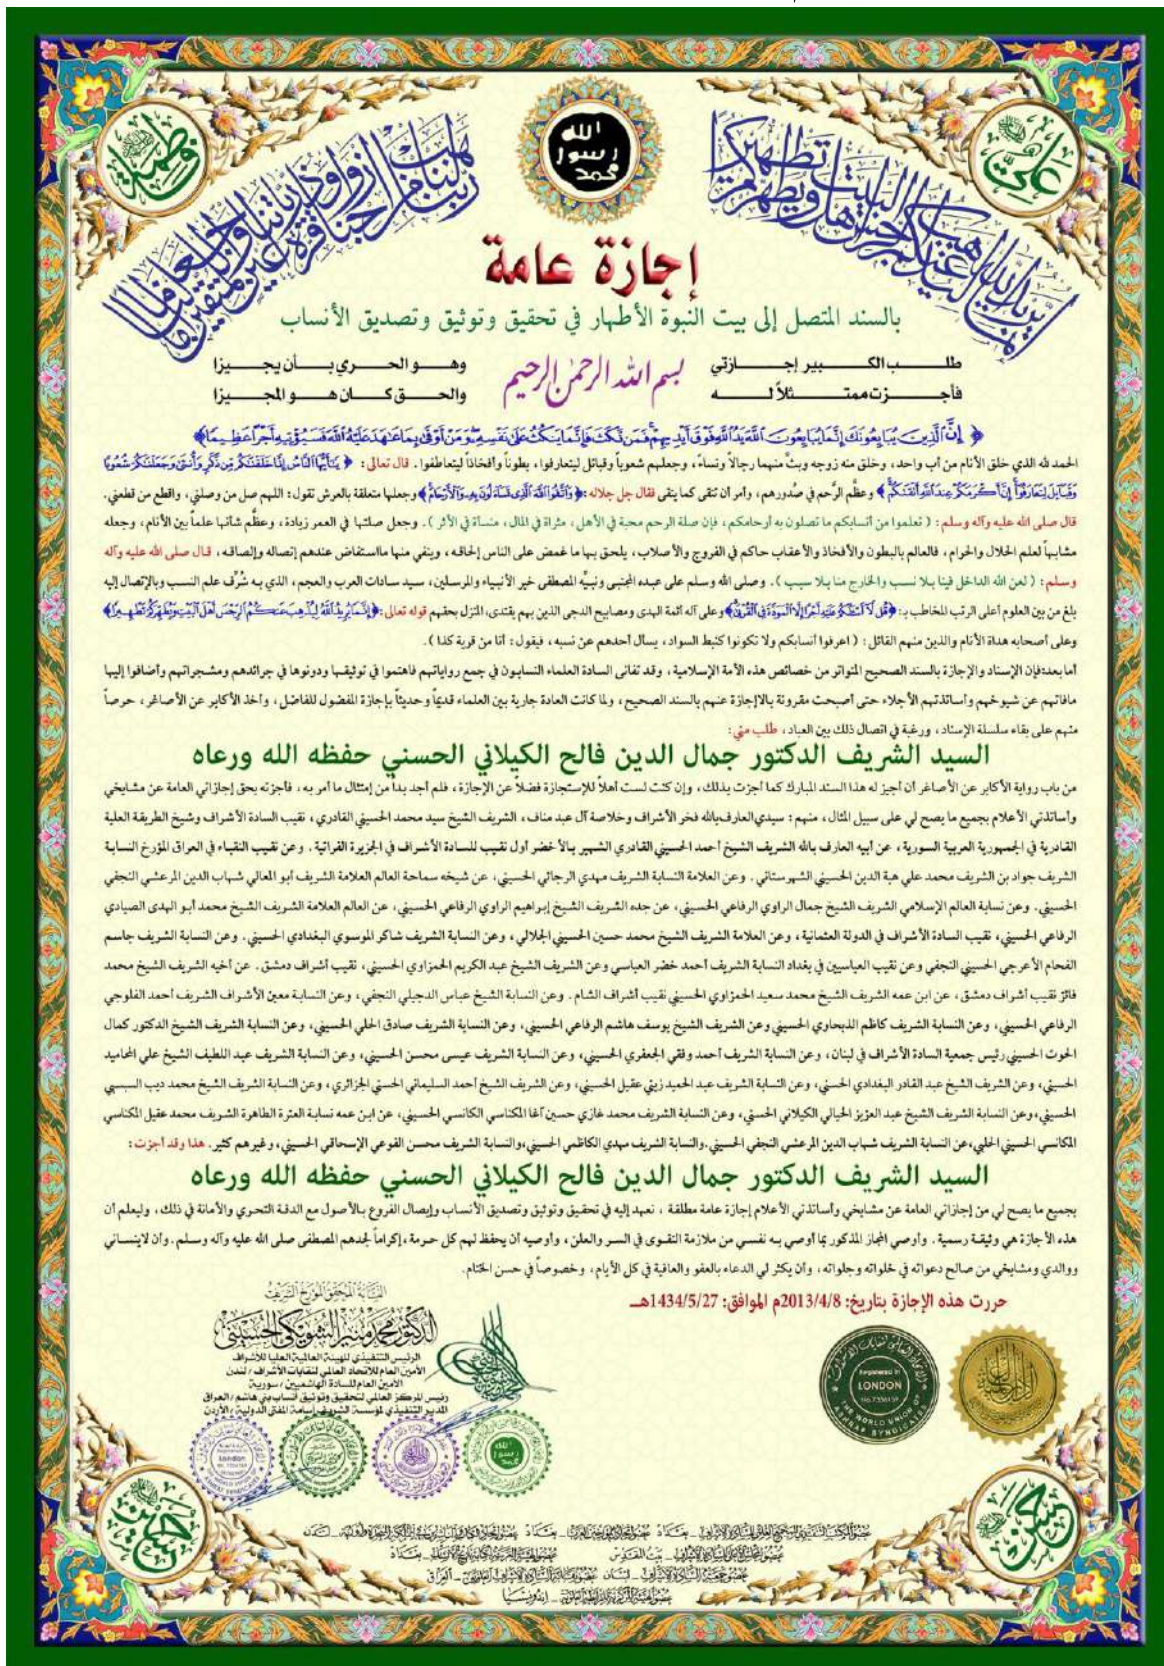 علي
فطمة
الله
رسول
محمد
إنما يريد الله ليذهب عنكم الرجس أهل البيت ويطهركم تطهيرا
ربنا هب لنا من أزواجنا وذرياتنا قرة أعين واجعلنا للمتقين إماما
إجازة عامة
بالسند المتصل إلى بيت النبوة الأطهار في تحقيق وتوثيق وتصديق الأنساب
طلب الكبير إجازتي وهو الحري بأن يجيزا
بسم الله الرحمن الرحيم
فأجزت ممتثلاً له والحق كان هو المجيزا
﴿ إِنَّ الَّذِينَ يُبَايِعُونَكَ إِنَّمَا يُبَايِعُونَ اللَّهَ يَدُ اللَّهِ فَوْقَ أَيْدِيهِمْ فَمَن نَّكَثَ فَإِنَّمَا يَنكُثُ عَلَىٰ نَفْسِهِ وَمَنْ أَوْفَىٰ بِمَا عَاهَدَ عَلَيْهُ اللَّهَ فَسَيُؤْتِيهِ أَجْرًا عَظِيمًا ﴾
الحمد لله الذي خلق الأنام من أب واحد، وخلق منه زوجه وبثّ منهما رجالاً ونساءً، وجعلهم شعوباً وقبائل ليتعارفوا، بطوناً وأفخاذاً ليتعاطفوا. قال تعالى: ﴿ يَا أَيُّهَا النَّاسُ إِنَّا خَلَقْنَاكُم مِّن ذَكَرٍ وَأُنثَىٰ وَجَعَلْنَاكُمْ شُعُوبًا
وَقَبَائِلَ لِتَعَارَفُوا إِنَّ أَكْرَمَكُمْ عِندَ اللَّهِ أَتْقَاكُمْ ﴾ وعظَّم الرَّحم في صُدورهم، وأمر أن تتقى كما يتقى فقال جل جلاله: ﴿ وَاتَّقُوا اللَّهَ الَّذِي تَسَاءَلُونَ بِهِ وَالْأَرْحَامَ ﴾ وجعلها متعلقة بالعرش تقول: اللهم صل من وصلني، واقطع من قطعني.
قال صلى الله عليه وآله وسلم: ( تعلموا من أنسابكم ما تصلون به أرحامكم، فإن صلة الرحم محبة في الأهل، مثراة في المال، منسأة في الأثر ). وجعل صلتها في العمر زيادة، وعظَّم شأنها علماً بين الأنام، وجعله
مشابهاً لعلم الحلال والحرام، فالعالم بالبطون والأفخاذ والأعقاب حاكم في الفروج والأصلاب، يلحق بها ما غمض على الناس إلحاقه، وينفي منها مااستفاض عندهم إتصاله وإلصاقه، قال صلى الله عليه وآله
وسلم: ( لعن الله الداخل فينا بلا نسب والخارج منا بلا سبب ). وصلى الله وسلم على عبده المجتبى ونبيّه المصطفى خير الأنبياء والمرسلين، سيد سادات العرب والعجم، الذي به شُرِّف علم النسب وبالإتصال إليه
بلغ من بين العلوم أعلى الرتب المخاطب بـ: ﴿ قُل لَّا أَسْأَلُكُمْ عَلَيْهِ أَجْرًا إِلَّا الْمَوَدَّةَ فِي الْقُرْبَىٰ ﴾ وعلى آله أئمة الهدى ومصابيح الدجى الذين بهم يقتدى، المنزل بحقهم قوله تعالى: ﴿ إِنَّمَا يُرِيدُ اللَّهُ لِيُذْهِبَ عَنكُمُ الرِّجْسَ أَهْلَ الْبَيْتِ وَيُطَهِّرَكُمْ تَطْهِيرًا ﴾
وعلى أصحابه هداة الأنام والذين منهم القائل: ( اعرفوا أنسابكم ولا تكونوا كنبط السواد، يسأل أحدهم عن نسبه، فيقول: أنا من قرية كذا ).
أما بعد:فإن الإسناد والإجازة بالسند الصحيح المتواتر من خصائص هذه الأمة الإسلامية، وقد تفانى السادة العلماء النسابون في جمع رواياتهم فاهتموا في توثيقها ودونوها في جرائدهم ومشجراتهم وأضافوا إليها
مافاتهم عن شيوخهم وأساتذتهم الأجلاء حتى أصبحت مقرونة بالإجازة عنهم بالسند الصحيح، ولما كانت العادة جارية بين العلماء قديماً وحديثاً بإجازة المفضول للفاضل، وأخذ الأكابر عن الأصاغر، حرصاً
منهم على بقاء سلسلة الإسناد، ورغبة في اتصال ذلك بين العباد، طلب مني:
السيد الشريف الدكتور جمال الدين فالح الكيلاني الحسني حفظه الله ورعاه
من باب رواية الأكابر عن الأصاغر أن أجيز له هذا السند المبارك كما أجزت بذلك، وإن كنت لست أهلاً للإستجازة فضلاً عن الإجازة، فلم أجد بداً من إمتثال ما أمر به، فأجزته بحق إجازاتي العامة عن مشايخي
وأساتذتي الأعلام بجميع ما يصح لي على سبيل المثال، منهم: سيدي العارف بالله فخر الأشراف وخلاصة آل عبد مناف، الشريف الشيخ سيد محمد الحسيني القادري، نقيب السادة الأشراف وشيخ الطريقة العلية
القادرية في الجمهورية العربية السورية، عن أبيه العارف بالله الشريف الشيخ أحمد الحسيني القادري الشهير بالأخضر أول نقيب للسادة الأشراف في الجزيرة الفراتية. وعن نقيب النقباء في العراق المؤرخ النسابة
الشريف جواد بن الشريف محمد علي هبة الدين الحسيني الشهرستاني. وعن العلامة النسابة الشريف مهدي الرجائي الحسيني، عن شيخه سماحة العالم العلامة الشريف أبو المعالي شهاب الدين المرعشي النجفي
الحسيني. وعن نسابة العالم الإسلامي الشريف الشيخ جمال الراوي الرفاعي الحسيني، عن جده الشريف الشيخ إبراهيم الراوي الرفاعي الحسيني، عن العالم العلامة الشريف الشيخ محمد أبو الهدى الصيادي
الرفاعي الحسيني، نقيب السادة الأشراف في الدولة العثمانية، وعن العلامة الشريف الشيخ محمد حسين الحسيني الجلالي، وعن النسابة الشريف شاكر الموسوي البغدادي الحسيني. وعن النسابة الشريف جاسم
الفحام الأعرجي الحسيني النجفي وعن نقيب العباسيين في بغداد النسابة الشريف أحمد خضر العباسي وعن الشريف الشيخ عبد الكريم الحمزاوي الحسيني، نقيب أشراف دمشق. عن أخيه الشريف الشيخ محمد
فائز نقيب أشراف دمشق، عن ابن عمه الشريف الشيخ محمد سعيد الحمزاوي الحسيني نقيب أشراف الشام. وعن النسابة الشيخ عباس الدجيلي النجفي، وعن النسابة معين الأشراف الشريف أحمد الفلوجي
الرفاعي الحسيني، وعن النسابة الشريف كاظم الذبحاوي الحسيني وعن الشريف الشيخ يوسف هاشم الرفاعي الحسيني، وعن النسابة الشريف صادق الحلي الحسيني، وعن النسابة الشريف الشيخ الدكتور كمال
الحوت الحسيني رئيس جمعية السادة الأشراف في لبنان، وعن النسابة الشريف أحمد وفقي الجعفري الحسيني، وعن النسابة الشريف عيسى محسن الحسيني، وعن النسابة الشريف عبد اللطيف الشيخ علي المحاميد
الحسيني، وعن الشريف الشيخ عبد القادر البغدادي الحسني، وعن النسابة الشريف عبد الحميد زيني عقيل الحسيني، وعن الشريف الشيخ أحمد السليماني الحسني الجزائري، وعن النسابة الشريف الشيخ محمد ديب السبسبي
الحسيني، وعن النسابة الشريف الشيخ عبد العزيز الحيالي الكيلاني الحسني، وعن النسابة الشريف محمد غازي حسين آغا المكناسي الكانسي الحسيني، عن ابن عمه نسابة العترة الطاهرة الشريف محمد عقيل المكناسي
المكانسي الحسيني الحلبي، عن النسابة الشريف شهاب الدين المرعشي النجفي الحسيني. والنسابة الشريف مهدي الكاظمي الحسيني، والنسابة الشريف محسن القوعي الإسحاقي الحسيني، وغيرهم كثير. هذا وقد أجزت:
السيد الشريف الدكتور جمال الدين فالح الكيلاني الحسني حفظه الله ورعاه
بجميع ما يصح لي من إجازاتي العامة عن مشايخي وأساتذتي الأعلام إجازة عامة مطلقة، نعهد إليه في تحقيق وتوثيق وتصديق الأنساب وإيصال الفروع بالأصول مع الدقة التحري والأمانة في ذلك، وليعلم أن
هذه الأجازة هي وثيقة رسمية. وأوصي المجاز المذكور بما أوصي به نفسي من ملازمة التقوى في السر والعلن، وأوصيه أن يحفظ لهم كل حرمة، إكراماً لجدهم المصطفى صلى الله عليه وآله وسلم. وأن لاينساني
ووالدي ومشايخي من صالح دعواته في خلواته وجلواته، وأن يكثر لي الدعاء بالعفو والعافية في كل الأيام، وخصوصاً في حسن الختام.
حررت هذه الإجازة بتاريخ: 2013/4/8م الموافق: 1434/5/27هـ
النسابة المحقق المؤرخ الشريف
الدكتور محمد منير الشويكي الحسيني
الرئيس التنفيذي للهيئة العالمية العليا للأشراف
الأمين العام للاتحاد العالمي لنقابات الأشراف / لندن
الأمين العام للسادة الهاشميين / سورية
رئيس المركز العالمي لتحقيق وتوثيق أنساب بني هاشم / العراق
المدير التنفيذي لمؤسسة الشريف أسامة المفتي الدولية / الأردن
Registered in
LONDON
No.7336159
THE WORLD UNION OF
ASHRAF SYNDICATES
London
الله
رسول
محمد
حسن
حسين